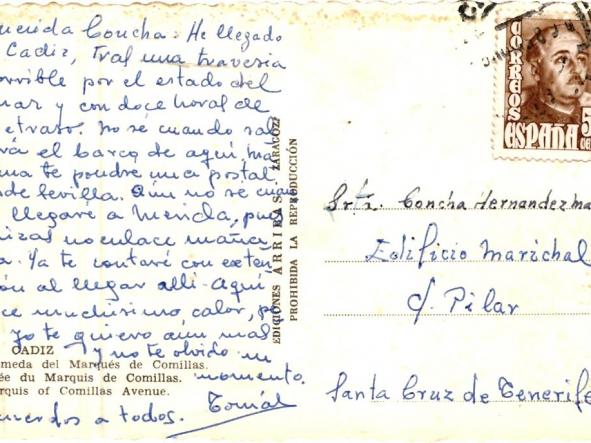 uerida Concha: He llegado
Cadiz, Tral una travesia
orrible por el estado del
mar y con doce horal de
etraso. no se cuando sal
rá el barco de aqui, ma
ana te pondre una postal
sde Sevilla. Aun no se cuan
llegaré a Merida, pue
izas no enlace maña
a. Ya te contaré con exten
ión al llegar alli. Aquí
ce muchisimo calor, pe
yo te quiero aún mas
y no te olvido un
momento.
CADIZ
meda del Marqués de Comillas.
ée du Marquis de Comillas.
arquis of Comillas Avenue.
uerdos a todos. Tomás
EDICIONES ARRIBAS ZARAGOZA
PROHIBIDA LA REPRODUCCIÓN
CORREOS
ESPAÑA
5
Srta. Concha Hernandez
Edificio Marichal
c/. Pilar
Santa Cruz de Tenerife